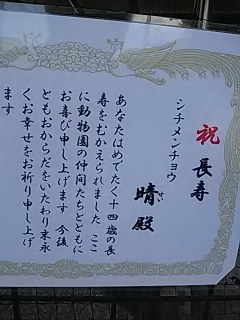 祝 長寿
シチメンチョウ
晴 殿
せい
あなたはめでたく十四歳の長
寿をむかえられました ここ
に動物園の仲間たちとともに
お喜び申し上げます 今後
ともおからだをいたわり末永
くお幸せをお祈り申し上げ
ます